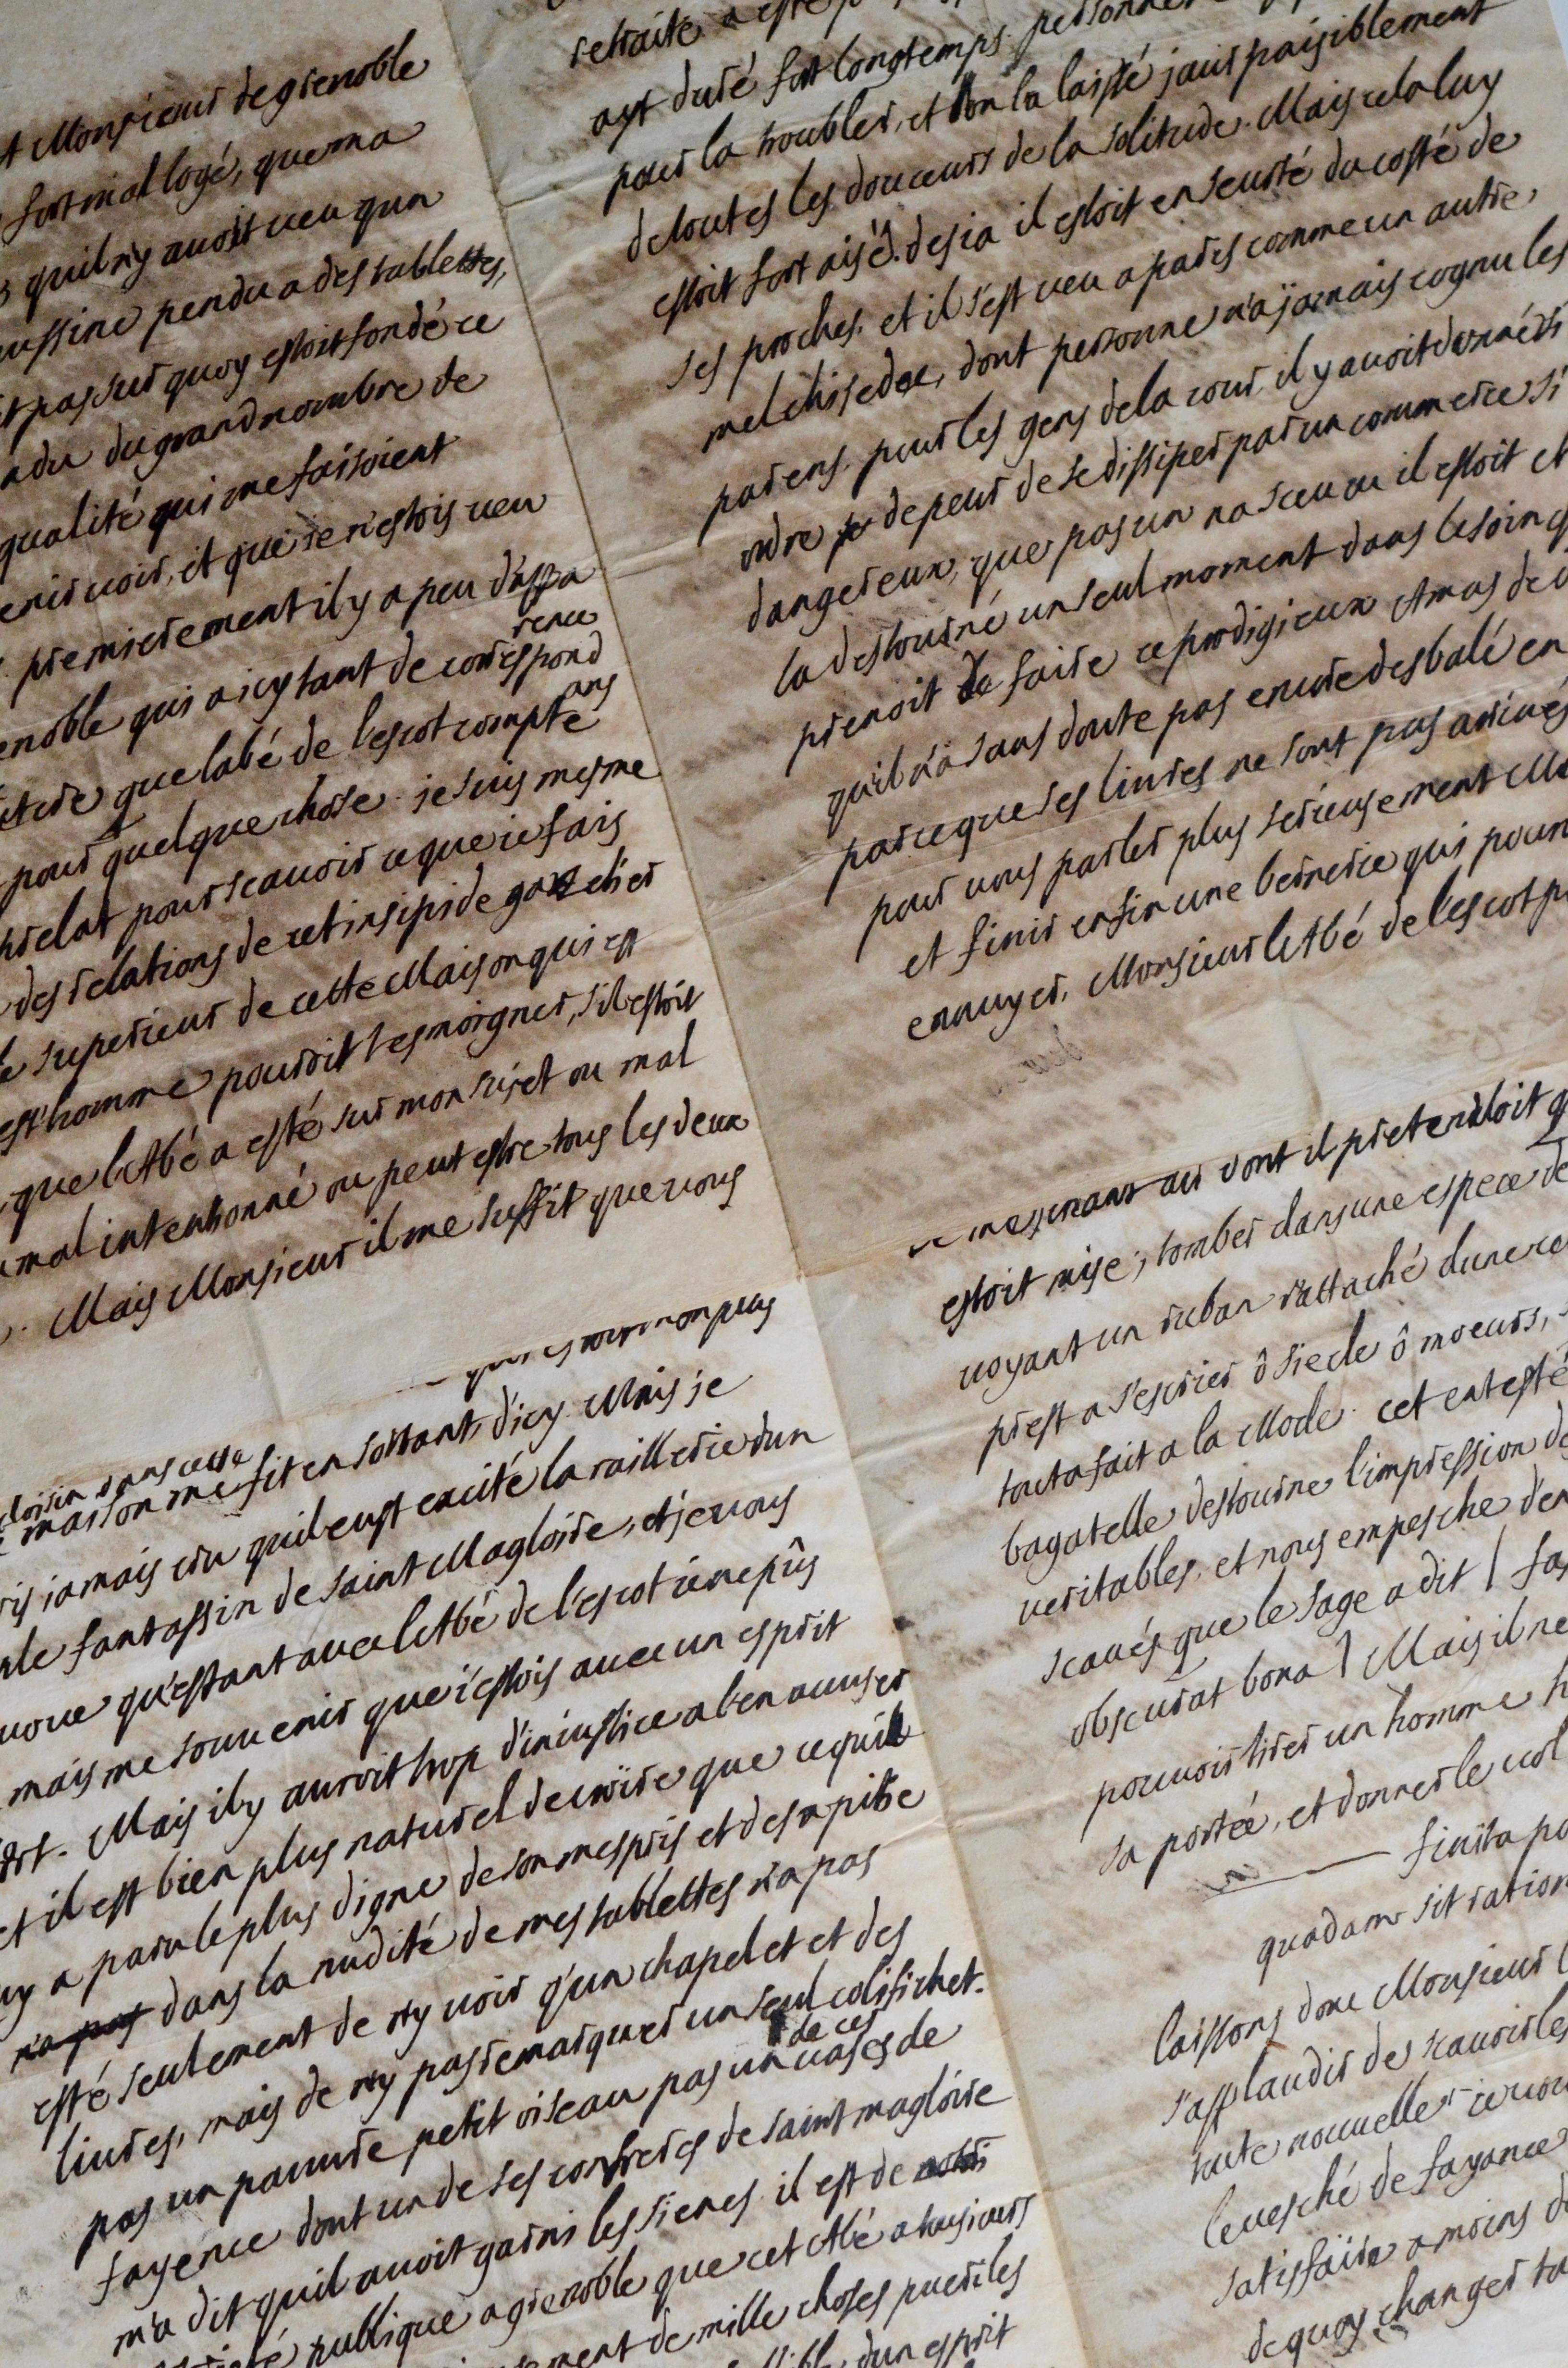 Monsieur de grenoble
fort mal logé, que ma
quil ny avoit veu qun
pendu a des tablettes,
pas sur quoy estoit fondé ce
du grand nombre de
qualité qui me faisoient
voir, et que ie n'estois veu
premierement il y a peu d'appa
rence
qui a icy tant de correspond
ans
que labé de lescot compte
pour quelque chose. je suis mesme
prelat pour scavoir ce que ie fais
des relations de cet insipide gazetier
superieur de cette Maison qui est
homme pourroit tesmoigner, s'il estoit
que l'Abé a esté sur mon suiet ou mal
mal intentionné ou peut estre tous les deux
. Mais Monsieur il me suffit que vous
non plus
loisir dans cette
maison me fit en sortant, d'icy. Mais je
jamais cru quil eust excité la raillerie dun
fantassin de saint Magloire, et je vous
qu'estant avec l'Abé de l'escot ie ne pûs
mais me souvenir que i'estois avec un esprit
. Mais il y auroit trop d'iniustice a l'en accuser
et il est bien plus naturel de croire que ce quil
luy a paru le plus digne de son mespris et de sa pitie
n'a pas dans la nudité de mes tablettes n'a pas
esté seulement de n'y voir q'un chapelet et des
livres, mais de n'y pas remarquer un seul colifichet.
de ces
pas un pauvre petit oiseau pas un vases de
fayence dont un de ses confreres de saint magloire
m'a dit quil avoit garni les sienes. il est de
publique a grenoble que cet Abé a tousiours
de mille choses pueriles
d'un esprit
retraite a esté
ayt duré fort longtemps. personne
pour la troubler, et lon la laissé jouir paisiblement
de toutes les douceurs de la solitude. Mais cela luy
estoit fort aisé. desia il estoit en seureté du costé de
ses proches. et il s'est veu a paris comme un autre,
melchisedec, dont personne n'a jamais cognu les
parens. pour les gens de la cour, il y avoit donné si
ordre de peur de se dissiper par un commerce si
dangereux, que pas un na sceu ou il estoit et
la destourné un seul moment dans le soin q
prenoit de faire ce prodigieux Amas de
qu'il n'a sans doute pas encore desbalé en
parce que ses livres ne sont pas arrivés
pour vous parler plus serieusement
et finir enfin une bernerie qui pour
ennuyer, Monsieur l'Abé de l'escot
dont il pretendoit q
estoit mise, tomber dans une espece de
voyant un ruban rattaché dune
prest a s'escrier ô siecle ô moeurs,
tout a fait a la Mode. cet entesté
bagatelle destourne l'impression de
veritables, et nous empesche d'en
scavés que le sage a dit
obscurat bona) Mais il ne
pouvoir tirer un homme h
sa portée, et donner le
finita
quadam sit ration
laissons donc Monsieur l
s'applaudir de scavoir les
toute nouvelle
levesché de fayance
satisfaire a moins
de quoy changer